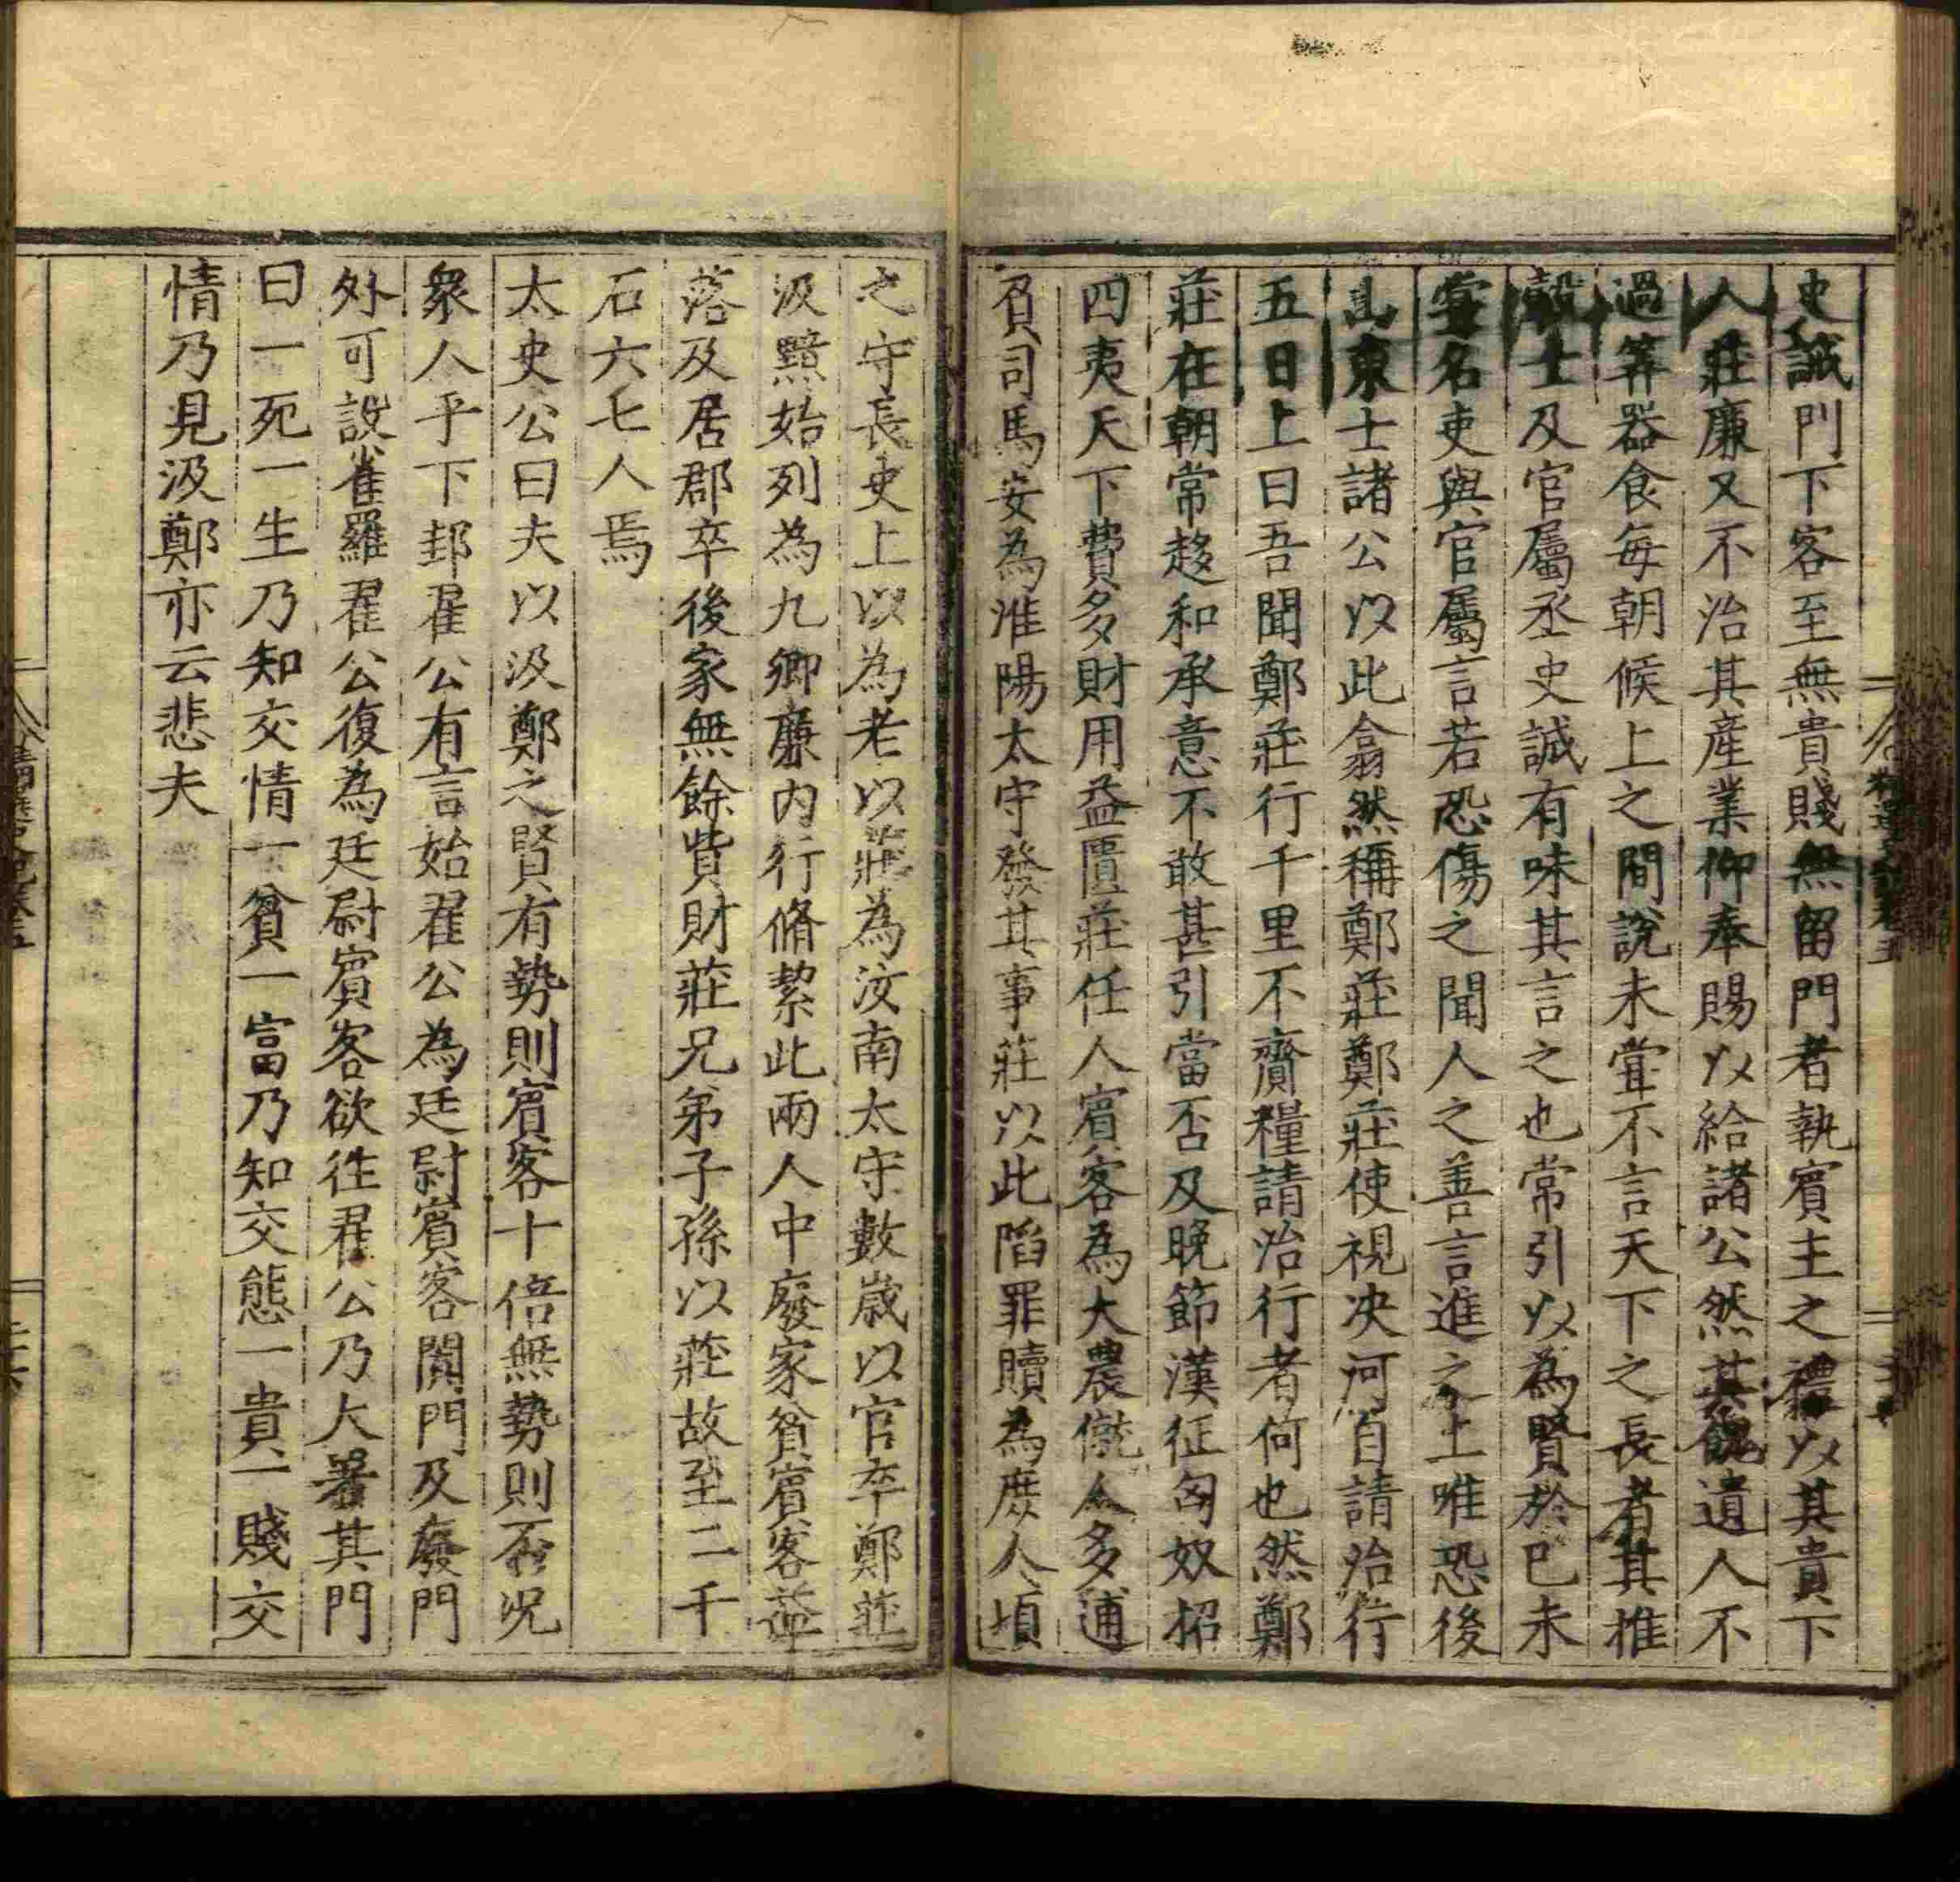 史誡門下客至無貴賤無留門者執賓主之禮以其貴下
人莊廉又不治其產業仰奉賜以給諸公然其餽遺人不
過筭器食每朝候上之間說未甞不言天下之長者其推
轂士及官屬丞史誠有味其言之也常引以為賢於已未
甞名吏與官屬言若恐傷之聞人之善言進之上唯恐後
山東士諸公以此翕然稱鄭莊鄭莊使視決河自請治行
五日上曰吾聞鄭莊行千里不齎糧請治行者何也然鄭
莊在朝常趍和承意不敢甚引當否及晚節漢征匈奴招
四夷天下費多財用益匱莊任人賓客為大農僦人多逋
負司馬安為淮陽太守發其事莊以此陷罪贖為庶人頃
之守長史上以為老以莊為汝南太守數歲以官卒鄭莊
汲黯始列為九卿廉內行脩絜此兩人中廢家貧賓客益
落及居郡卒後家無餘貲財莊兄弟子孫以莊故至二千
石六七人焉
太史公曰夫以汲鄭之賢有勢則賓客十倍無勢則否況
衆人乎下邽翟公有言始翟公為廷尉賓客闐門及廢門
外可設雀羅翟公復為廷尉賓客欲徃翟公乃大署其門
曰一死一生乃知交情一貧一富乃知交態一貴一賤交
情乃見汲鄭亦云悲夫